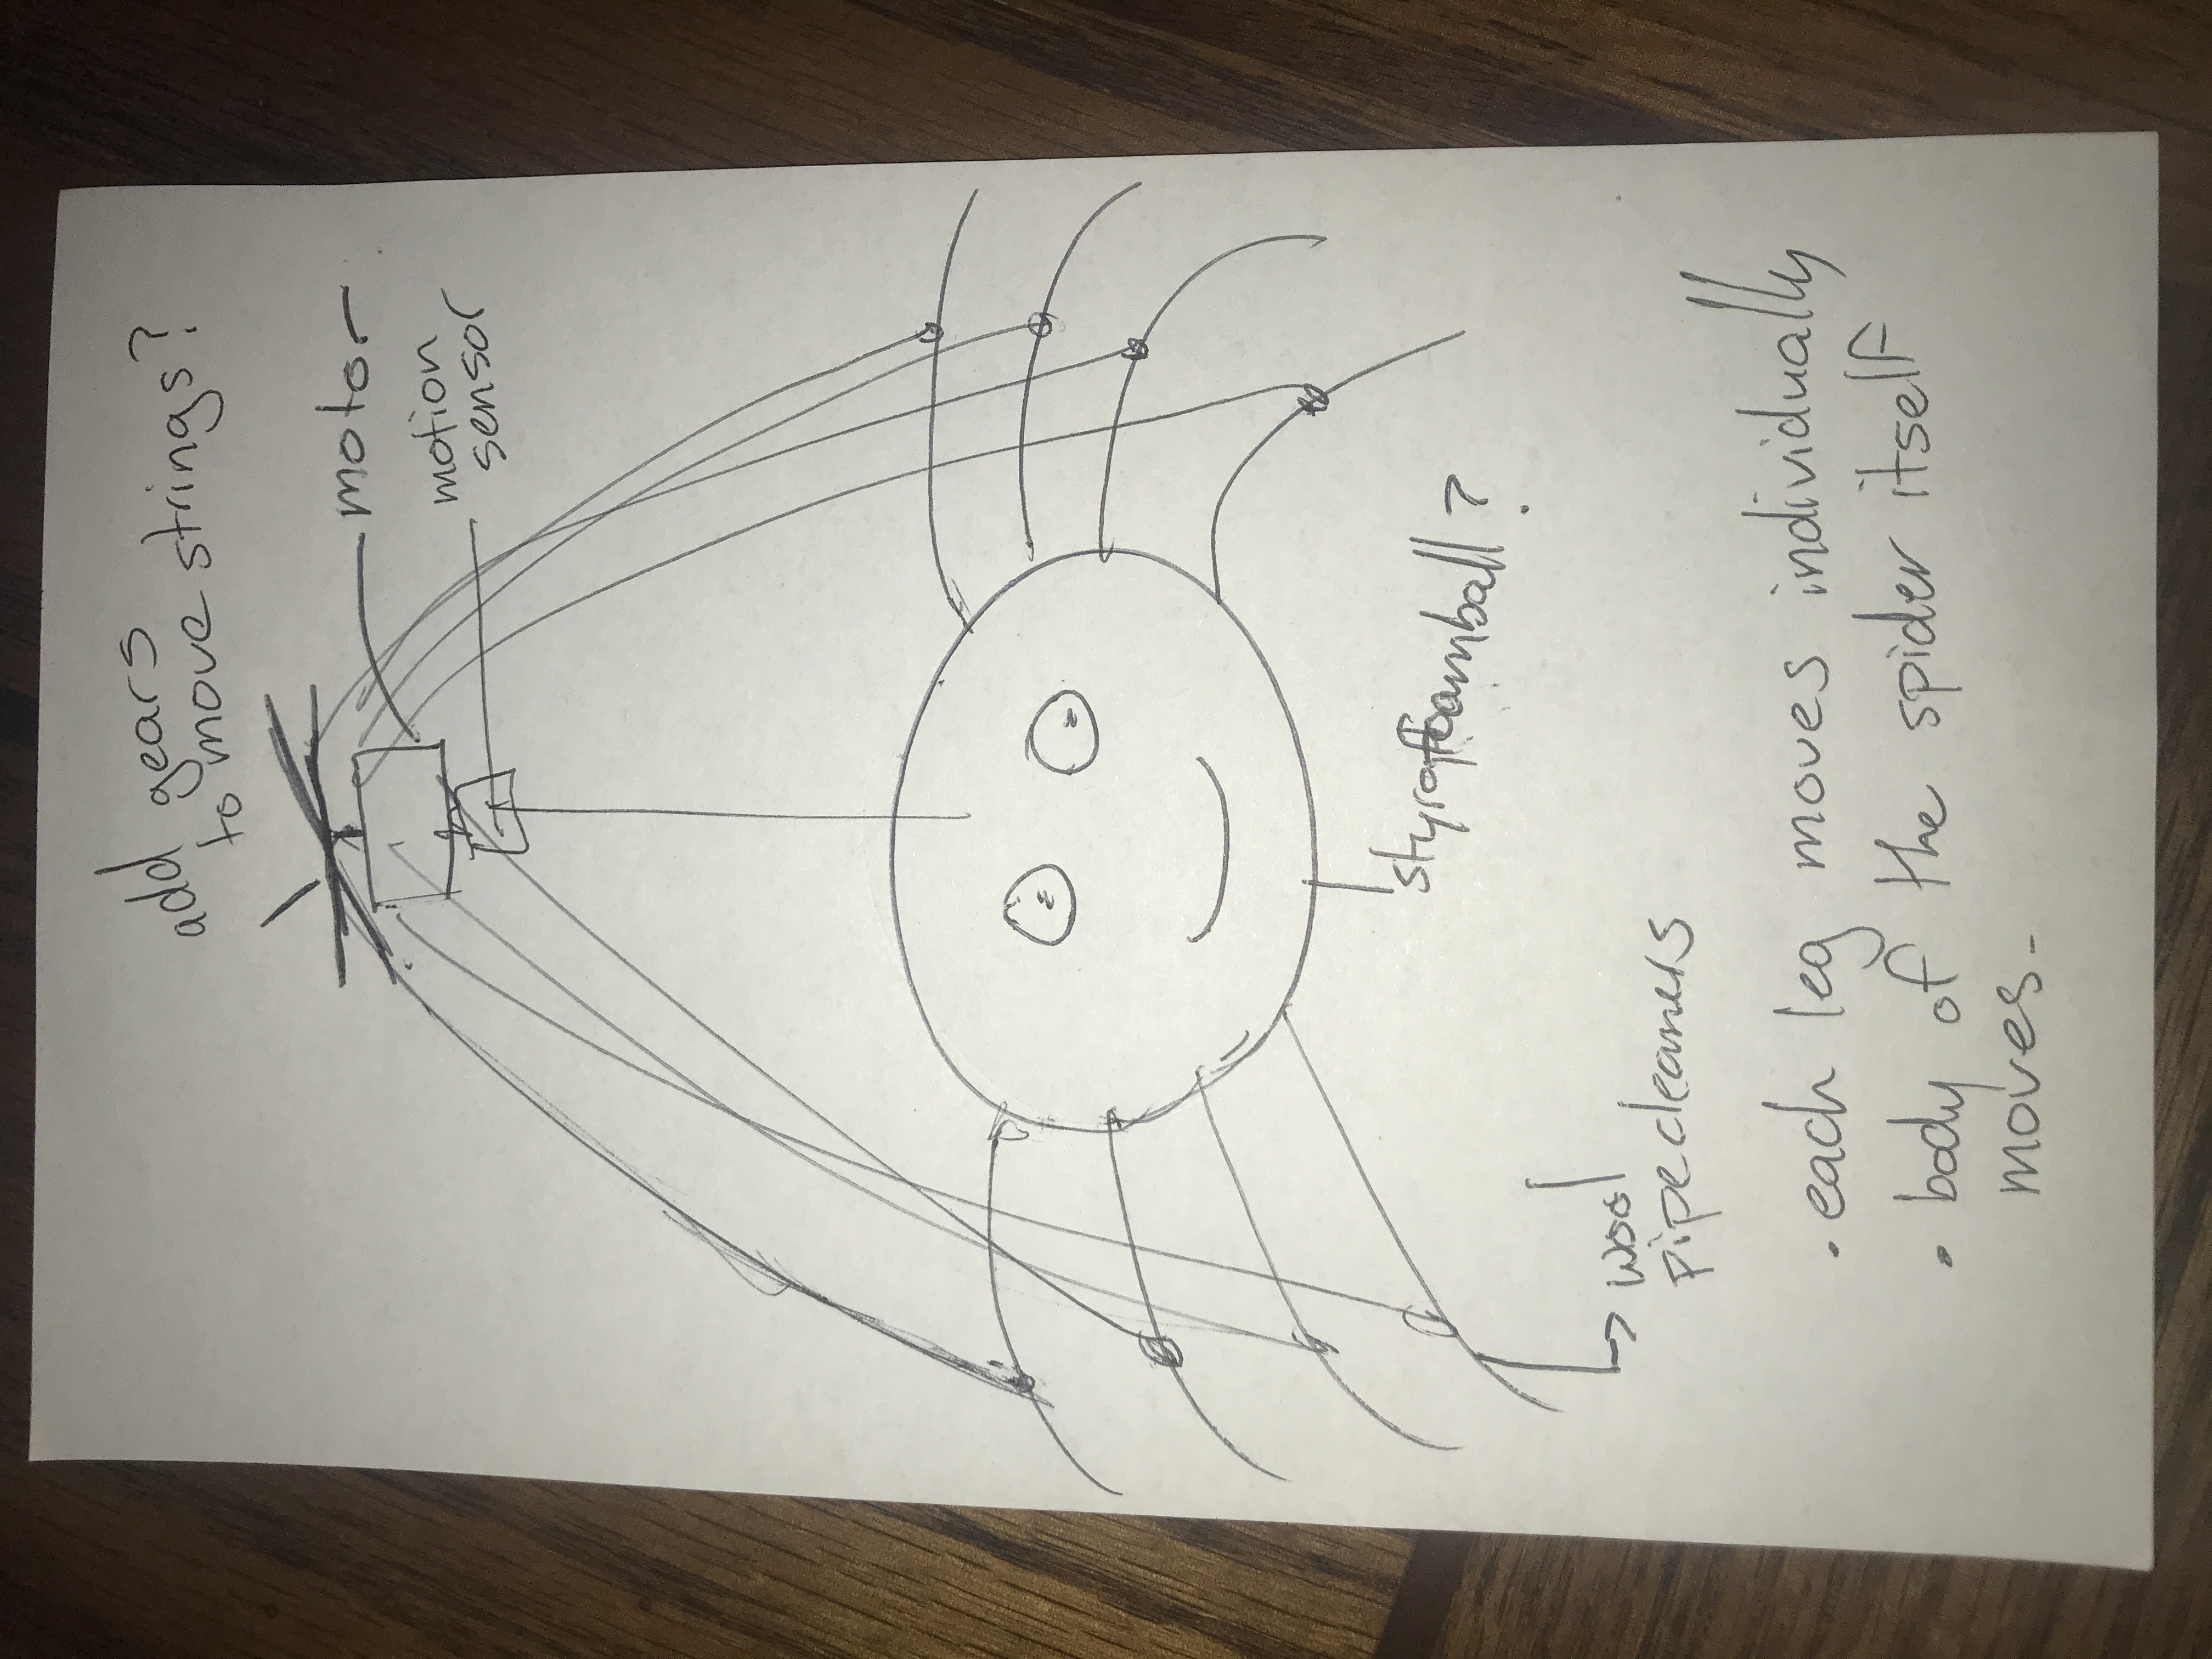 add gears
to move strings?
motor
motion
sensor
styrofoamball?
wool
pipecleaners
. each leg moves individually
. body of the spider itself
moves.